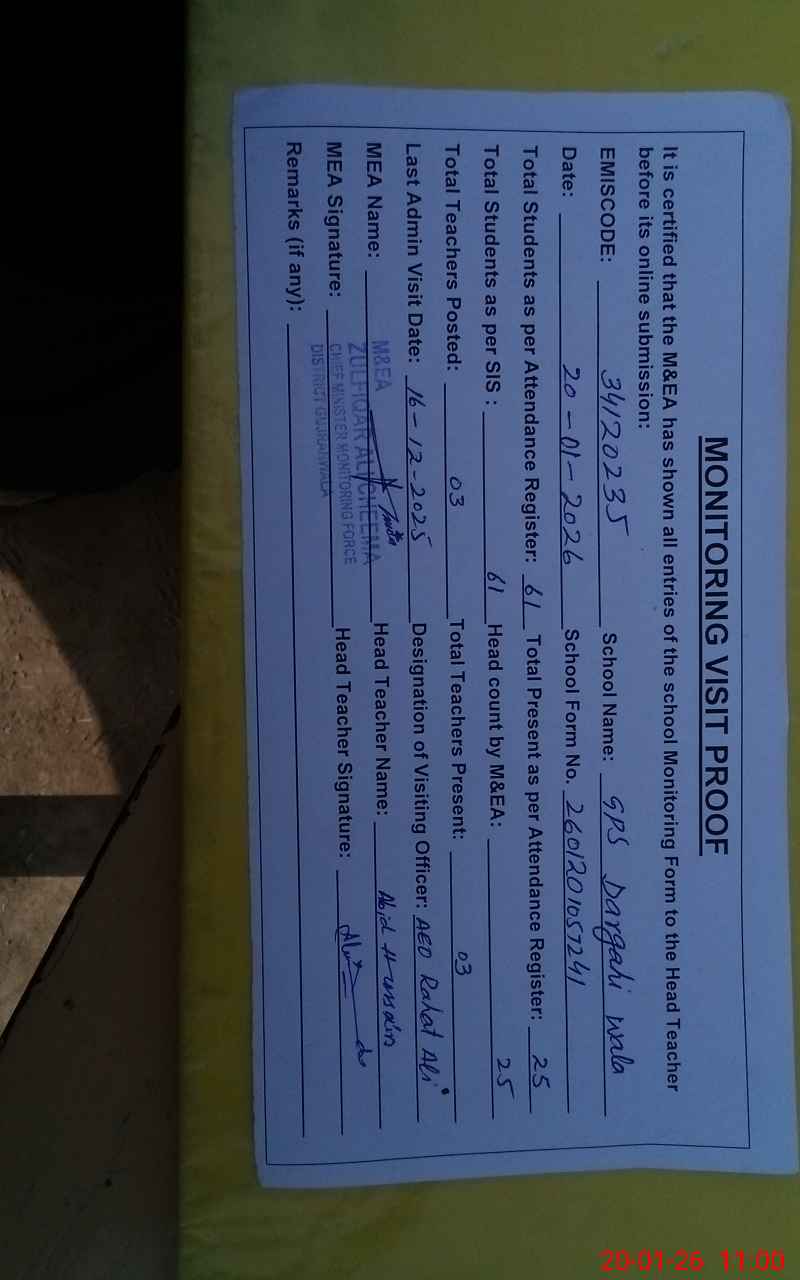 MONITORING VISIT PROOF
It is certified that the M&EA has shown all entries of the school Monitoring Form to the Head Teacher
before its online submission:
EMISCODE: 34120235 School Name: GPS Dargahi Wala
Date: 20-01-2026 School Form No. 2601201057241
Total Students as per Attendance Register: 61 Total Present as per Attendance Register: 25
Total Students as per SIS : 61 Head count by M&EA: 25
Total Teachers Posted: 03 Total Teachers Present: 03
Last Admin Visit Date: 16-12-2025 Designation of Visiting Officer: AEO Rahat Ali
MEA Name: Head Teacher Name: Abid Hussain
MEA Signature: Head Teacher Signature:
M&EA
ZULFIQAR ALI CHEEMA
CHIEF MINISTER MONITORING FORCE
DISTRICT GUJRANWALA
Remarks (if any):
20-01-26 11:00